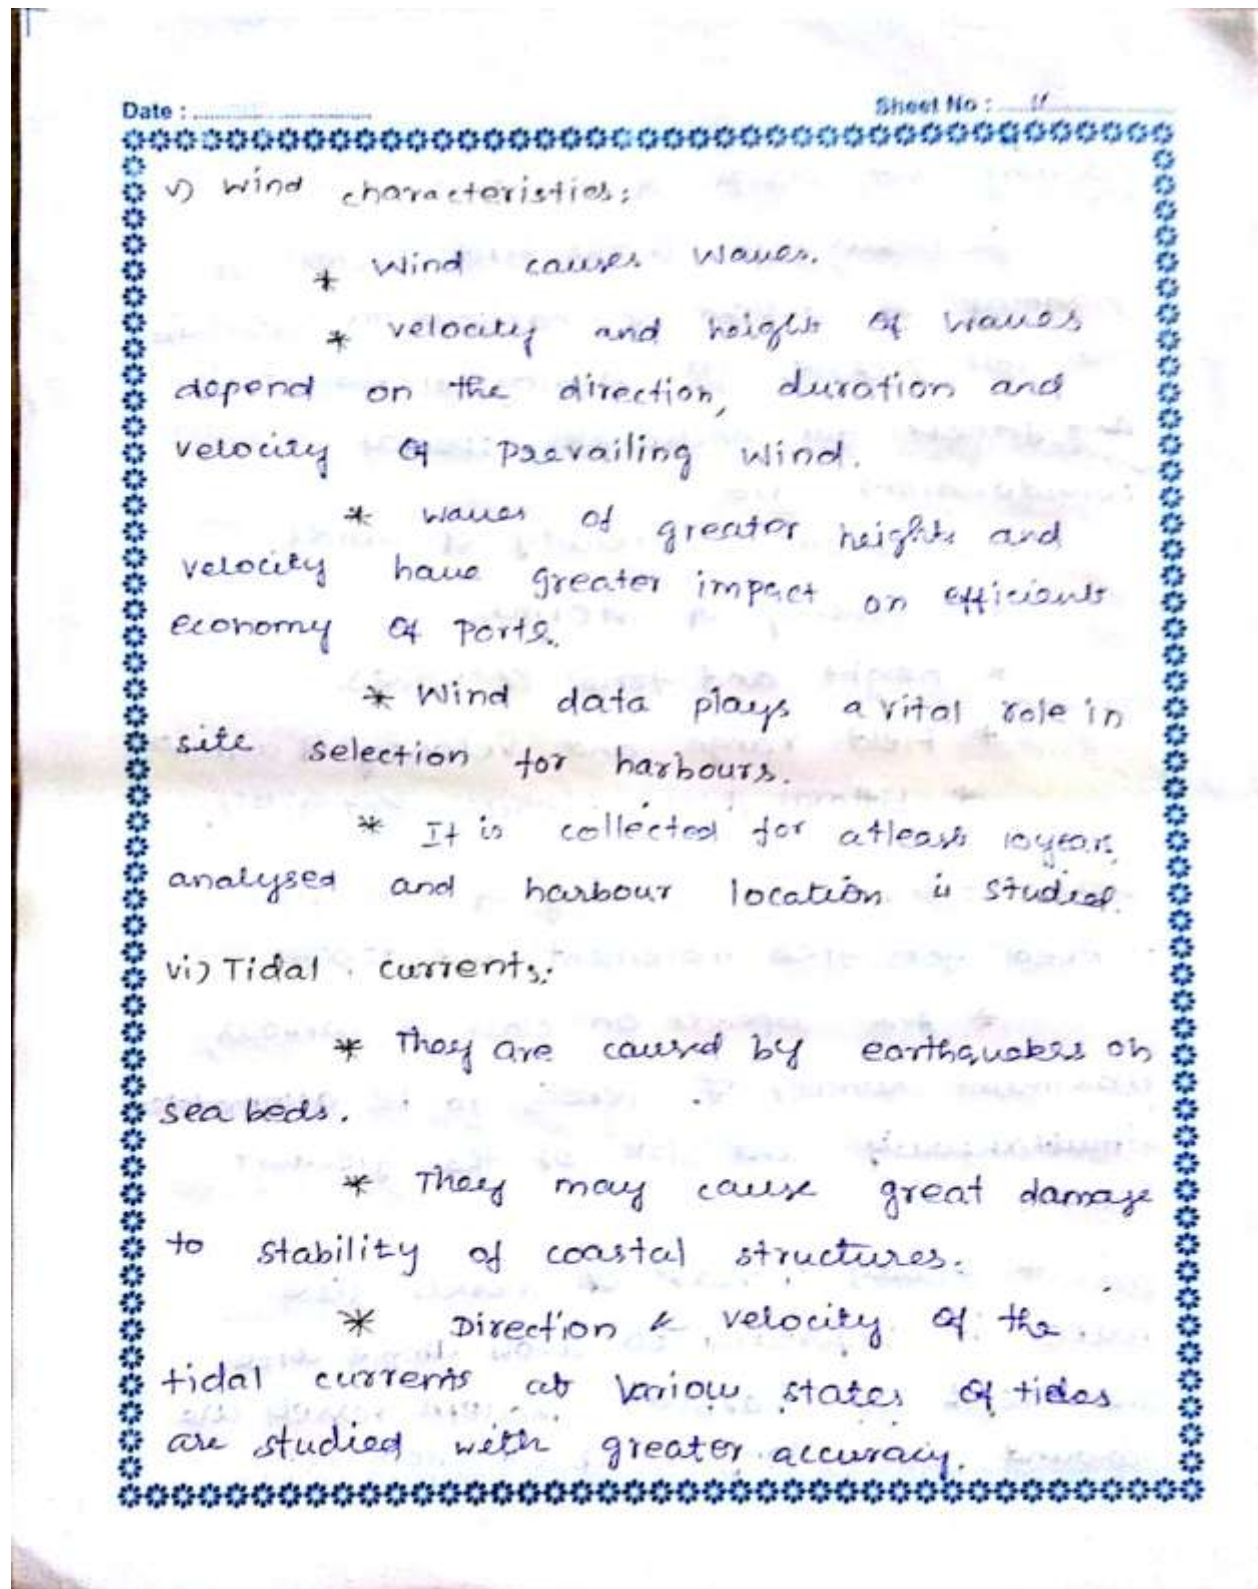 Date :
Sheet No : 11
v) Wind characteristics:
* Wind causes waves.
* velocity and height of waves
depend on the direction, duration and
velocity of prevailing wind.
* waves of greater heights and
velocity have greater impact on efficient
economy of ports.
* Wind data plays a vital role in
site selection for harbours.
* It is collected for atleast 10 years,
analysed and harbour location is studied.
vi) Tidal currents:
* They are caused by earthquakes on
sea beds.
* They may cause great damage
to stability of coastal structures.
* Direction & velocity of the
tidal currents at various states of tides
are studied with greater accuracy.